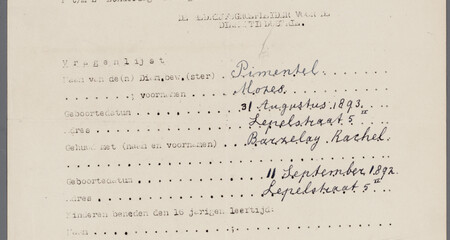 V r a g e n l i j s t
Naam van de(n) Dien.bew.(ster) Pimentel.
. . . . . . . . ; voornamen . . . . Mozes.
Geboortedatum . . . . . 31 Augustus 1893.
Adres . . . . . Lepelstraat 5 II
Gehuwd met (naam en voornamen) . Barzelay Rachel.
Geboortedatum . . . . . 11 September 1892.
Adres . . . . . Lepelstraat 5 II
Kinderen beneden den 16 jarigen leeftijd:
Naam . . . . . ;